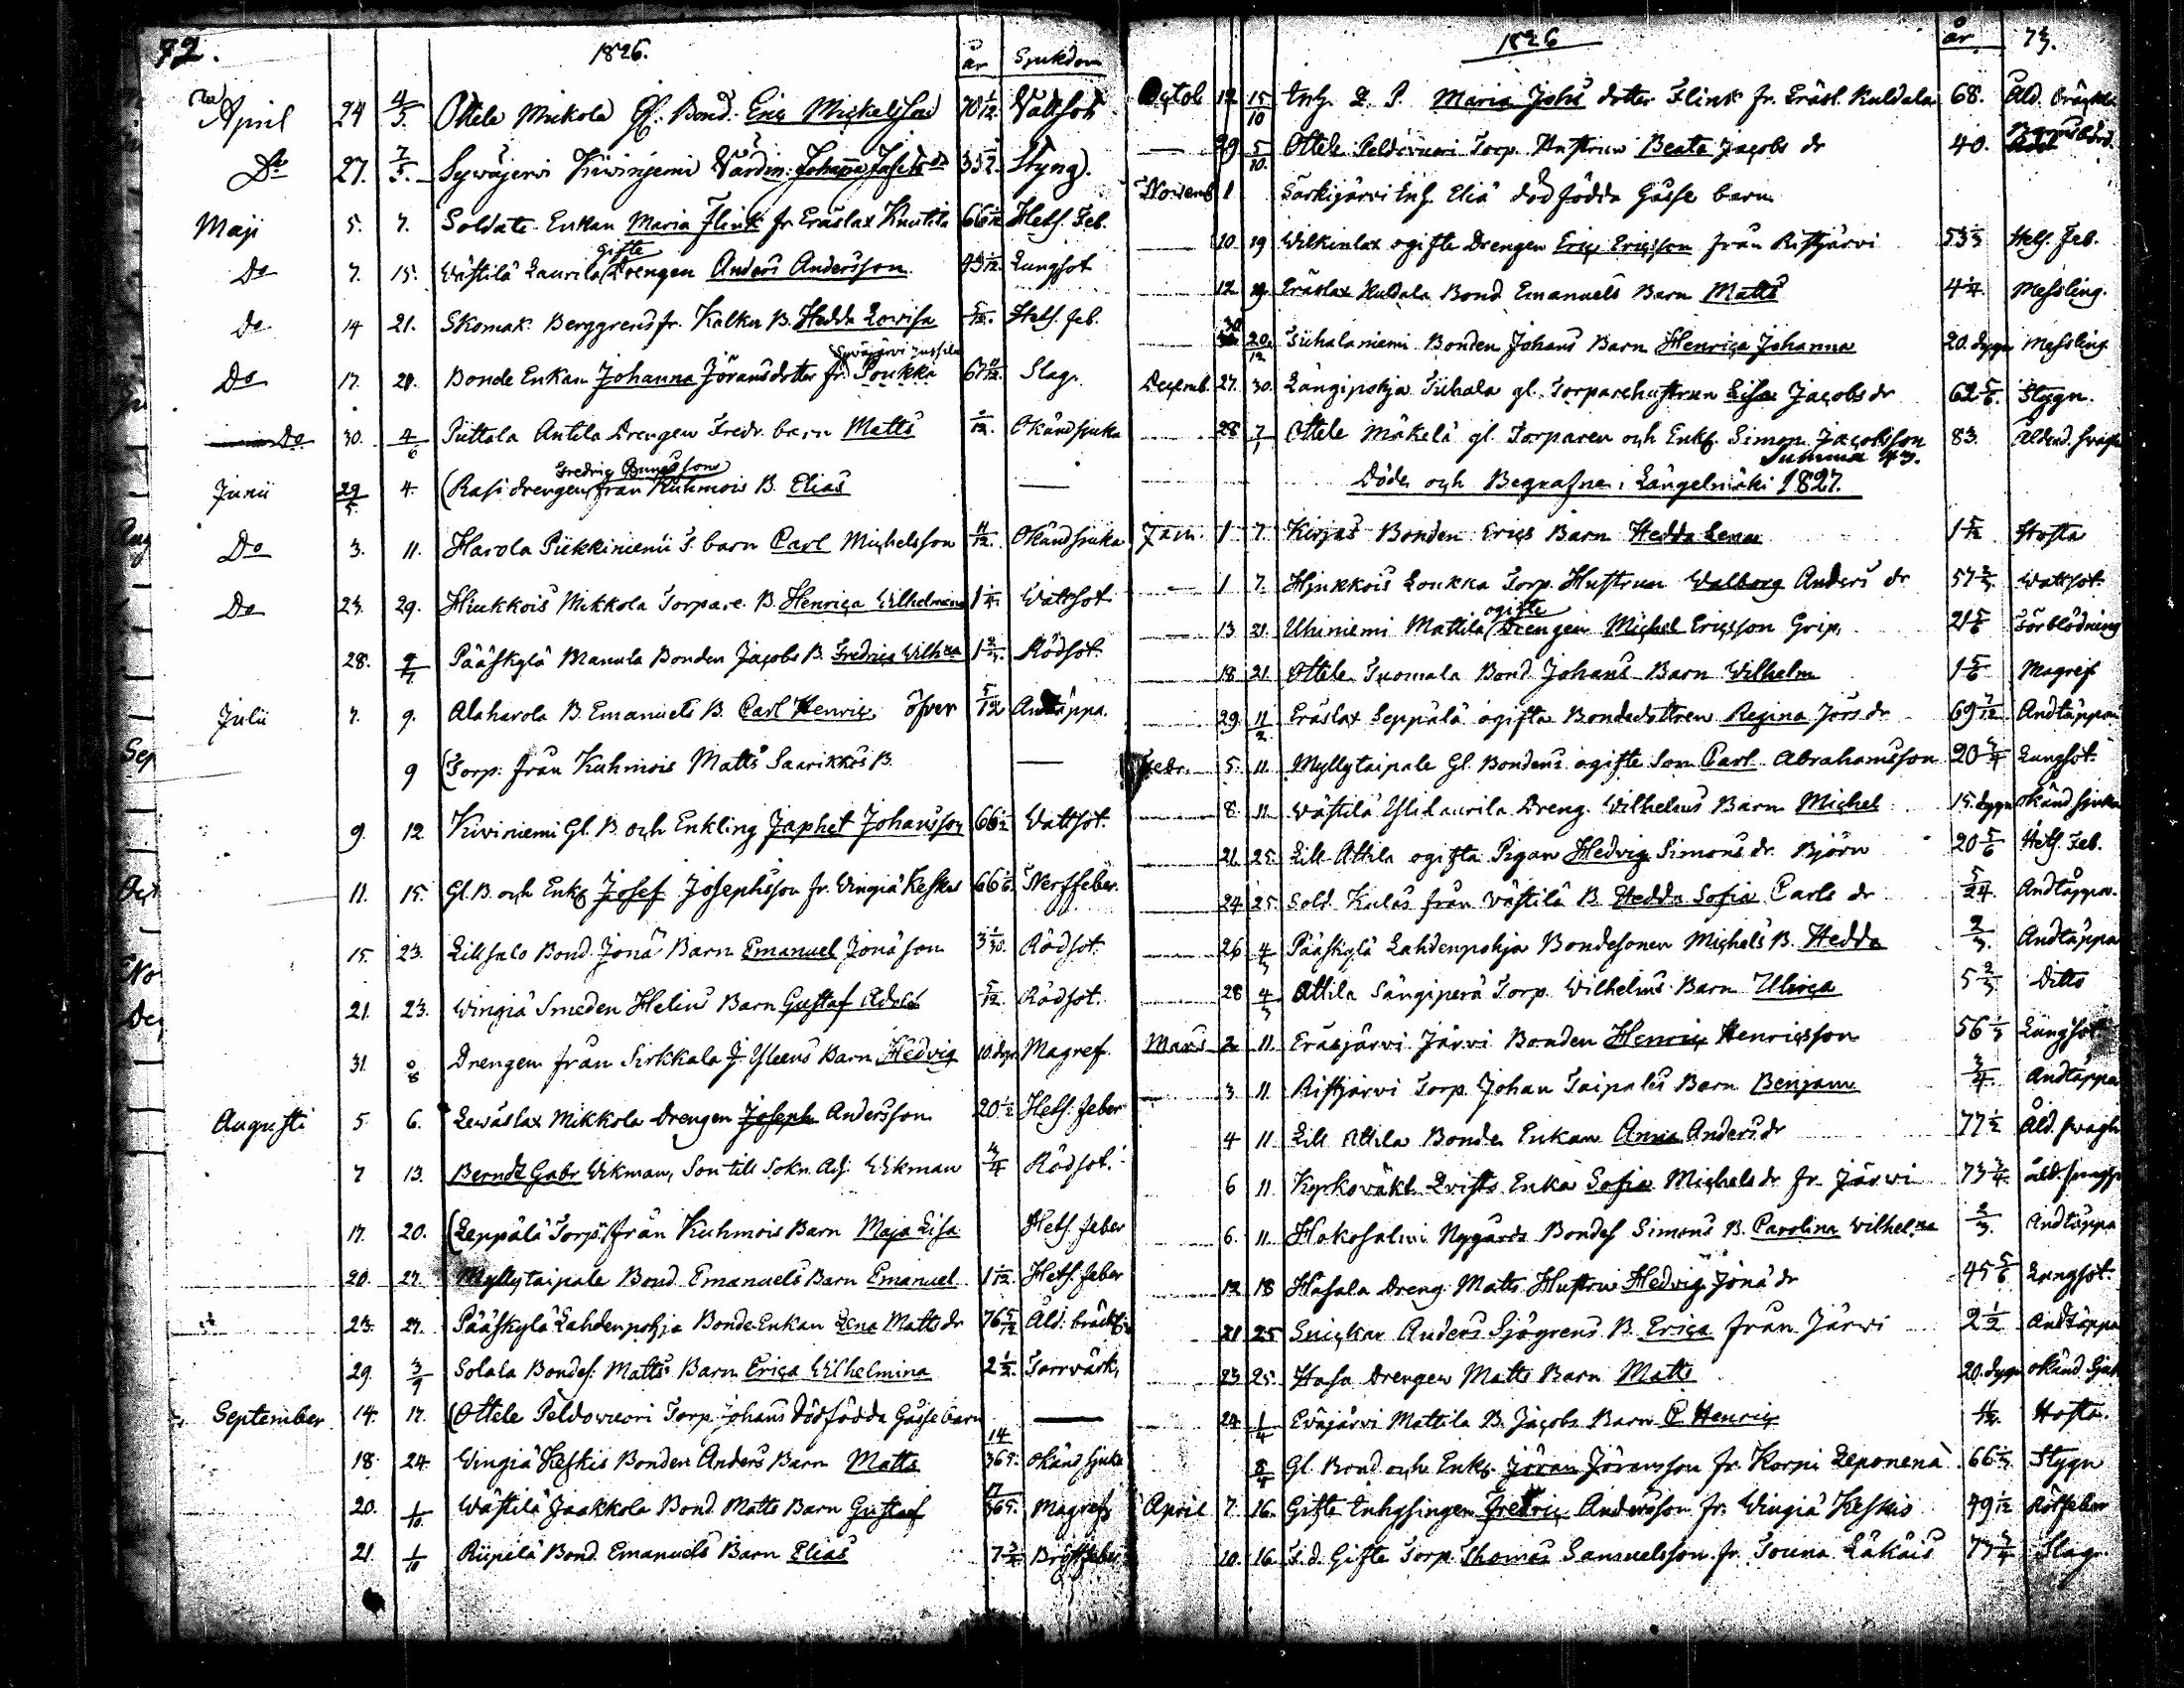 72.
1826.
år Sjukdom
April 24 4/5. Ottele Mickola Gl. Bond. Eric Mickelsson 70 1/12. Wattsot
Do 27. 7/5. Sywäjerwi Kiwinjemi Värdin: Johanna Josefs dr 35 1/2. Styng.
Maji 5. 7. Soldats Enkan Maria Flink fr Eräslax Knutila 66 Hets. Feb.
Do 7. 15. Västilä Laurila gifte Drengen Anders Andersson 43 Lungsot
do 14 21. Skomak. Berggrens fr. Kalku B. Hedda Lovisa 5/12. Hets. feb.
Do 17. 21. Bonde Enkan Johanna Jöransdotter fr. Poukka 67 Slag.
Do 30. 4/6 Puttola Antila Drengen Fredr. barn Matts 2/12. Okänd sjuka
Junii 29/5. 4. (Rasi drengen Fredric från Kuhmois B. Elias —
Do 3. 11. Harola Piikkiniemi T. barn Carl Michelsson 11/12. Okänd sjuka
Do 23. 29. Hiukkois Mikkola Torpare B. Henrica Wilhelmina 1 1/4. Wattsot
28. 9/7 Pääskylä Manula Bonden Jacobs B. Fredrica Wilhna 1 Rödsot.
Julii 7. 9. Alaharola B. Emanuels B. Carl Henric öfver 5/12 Andtäppa.
9 (Torp. från Kuhmois Matts Saarikkos B. —
9. 12 Kiviniemi Gl. B. och Enkling Japhet Johansson 66 1/2 Wattsot.
11. 15. Gl. B. och Enkl Josef Josephsson fr. Vingiä Keskis 66 1/6. Nerffeber.
15. 23. Lillsalo Bond. Jonä Barn Emanuel Jonä son 3 1/30. Rödsot.
21. 23. Vingiä Smeden Helins Barn Gustaf Adolf 5/12. Rödsot.
31. 8 Drengen från Sirkkala J. Yleens Barn Hedvig 10. dygn Magref
Augusti 5 6. Lewäslax Mikkola Drengen Joseph Andersson 20 1/2 Hets. feber
7 13. Berndt Gabr Wikman, Son till Sokn. Adj. Wikman 3/4 Rödsot.
17. 20. (Leppälä Torp. från Kuhmois Barn Maja Lisa Hets. feber
20. 27. Myllytaipale Bond Emanuels Barn Emanuel 1 1/12. Hets. feber
23. 27. Pääskylä Lahdenpohja Bonde Enkan Lena Matts dr 76 5/12 Åld. bräckl.
29. 3/9 Solala Bondes. Matts Barn Erica Wilhelmina 2 1/2. Torrvärk,
September 14. 17. (Ottele Peldowuori Torp. Johans dödfödda Gosse barn —
18. 24. Vingiä Keskis Bonden Anders Barn Matts 14/365. okänd sjuka
20. 1/10. Wästilä Jaakkola Bond. Matts Barn Gustaf 17/365. Magref
21 1/10 Riipilä Bond. Emanuels Barn Elias 7 3/4 Bröstfeber
1826
år 73.
Octob 12 15/10 Inh. Maria Johs dotter Flink fr. Eräsl. Kuldala 68. Åld. bräckl.
— 29 5/10. Ottele Peldovuori Torp. Hustrun Beata Jacobs dr 40.
Novemb 1 Särkijärvi Inh. Eliä dödfödda Gosse barn
— 10. 19 Wilkinlax ogifte Drengen Eric Ericsson från Ristjärvi 53 1/3 Hets. Feb.
— 12 19. Eräslax Kuldala Bond Emanuels Barn Matts 4 1/4. Messling.
— 30 20/12 Tiihalaniemi Bonden Johans Barn Henrica Johanna 20. dygn Messling
Decemb. 27. 30. Längipohja Tiihala gl. Torparehustrun Lisa Jacobs dr 62 5/6. Stygn.
28 7/1 Ottele Mäkelä gl. Torparen och Enkl. Simon Jacobsson 83. Ålderd. svagh
Summa 43.
Döde och Begrafne i Längelmäki 1827.
Jan. 1 7. Kirjas Bonden Erics Barn Hedda Lena 1 5/12 Hosta
— 1 7. Hjukkois Loukka Torp. Hustrun Walborg Anders dr 57 2/3 Wattsot.
— 13 21. Uhiniemi Mattila ogifte Drengen Michel Ericsson Grip, 21 5/6 Förblödning
— 18 21 Ottele Tuomala Bond Johans Barn Wilhelm 1 5/6 Magref
— 29 11/2. Eräslax Seppälä ogifta Bondedottren Regina Jörs dr 69 7/12 Andtäppa
Febr. 5. 11. Myllytaipale Gl. Bondens ogifte Son Carl Abrahamsson 20 3/4 Lungsot.
— 8. 11. Wästilä Ylilaurila Dreng. Wilhelms Barn Michel 15. dygn okänd sjuka
— 21 25. Lill-Attila ogifta Pigan Hedvig Simons dr Björn 20 5/6 Hets. Feb.
— 24 25 Sold. Kulas från Västilä B. Hedda Sofia Carls dr 5/24. Andtäppa.
— 26 4/3 Pääskylä Lahdenpohja Bondesonen Michels B. Hedda 2/3. Andtäppa
— 28 4/3 Attila Sängiperä Torp. Wilhelms Barn Ulrica 5 2/3 Ditto
Mars 2 11. Eräsjärvi Järvi Bonden Henric Henricsson 56 1/3 Lungsot
— 3 11 Ristjärvi Torp. Johan Taipales Barn Benjam 3/4. Andtäppa
4 11 Lill Attila Bonde Enkan Anna Andersdr 77 1/2 Åld. svagh
6 11 Kyrkoväkt. Qvists Enka Sofia Michels dr fr. Järvi 73 3/4. åld. svagh
6. 11. Hakosalmi Nygårds Bondes Simons B. Carolina Wilhelna 2/3. Andtäppa
12 18 Hasala Dreng. Matts Hustru Hedvig Jonä dr 45 5/6 Lungsot.
21 25 Snickar Anders Sjögrens B. Erica från Järvi 2 1/2 Andtäppa
23 25. Hasa Drengen Matts Barn Matts 20. dygn okänd Sjuk
— 24 1/4 Eväjärvi Mattila B. Jacobs Barn C Henric Hosta.
8/4 Gl. Bond och Enkl. Jöran Jöransson fr. Korpi Leponena 66 1/3 Stygn
April 7. 16. Gifte Inhysingen Fredric Andersson fr. Vingiä Keskis 49 1/12 Rötfeber
10. 16. F. d. Gifte Torp. Thomas Samuelsson fr. Touna Läkäis 73 3/4 Slag.